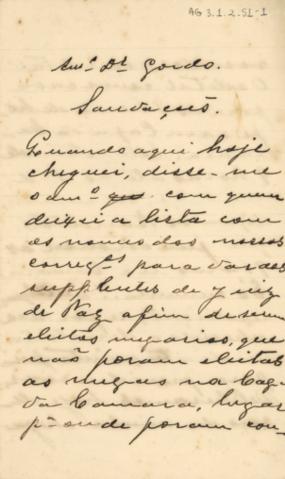 AG 3.1.2.51-1
Am.º Dr. Gordo.
Saudações.
Quando aqui hoje
cheguei, disse-me
o am.º com quem
deixei a lista com
os nomes dos nossos
correg.es para
supplentes de Juiz
de Paz afim de serem
eleitos, que
não foram eleitos
os na
da Camara, lugar
p.ª onde foram con-